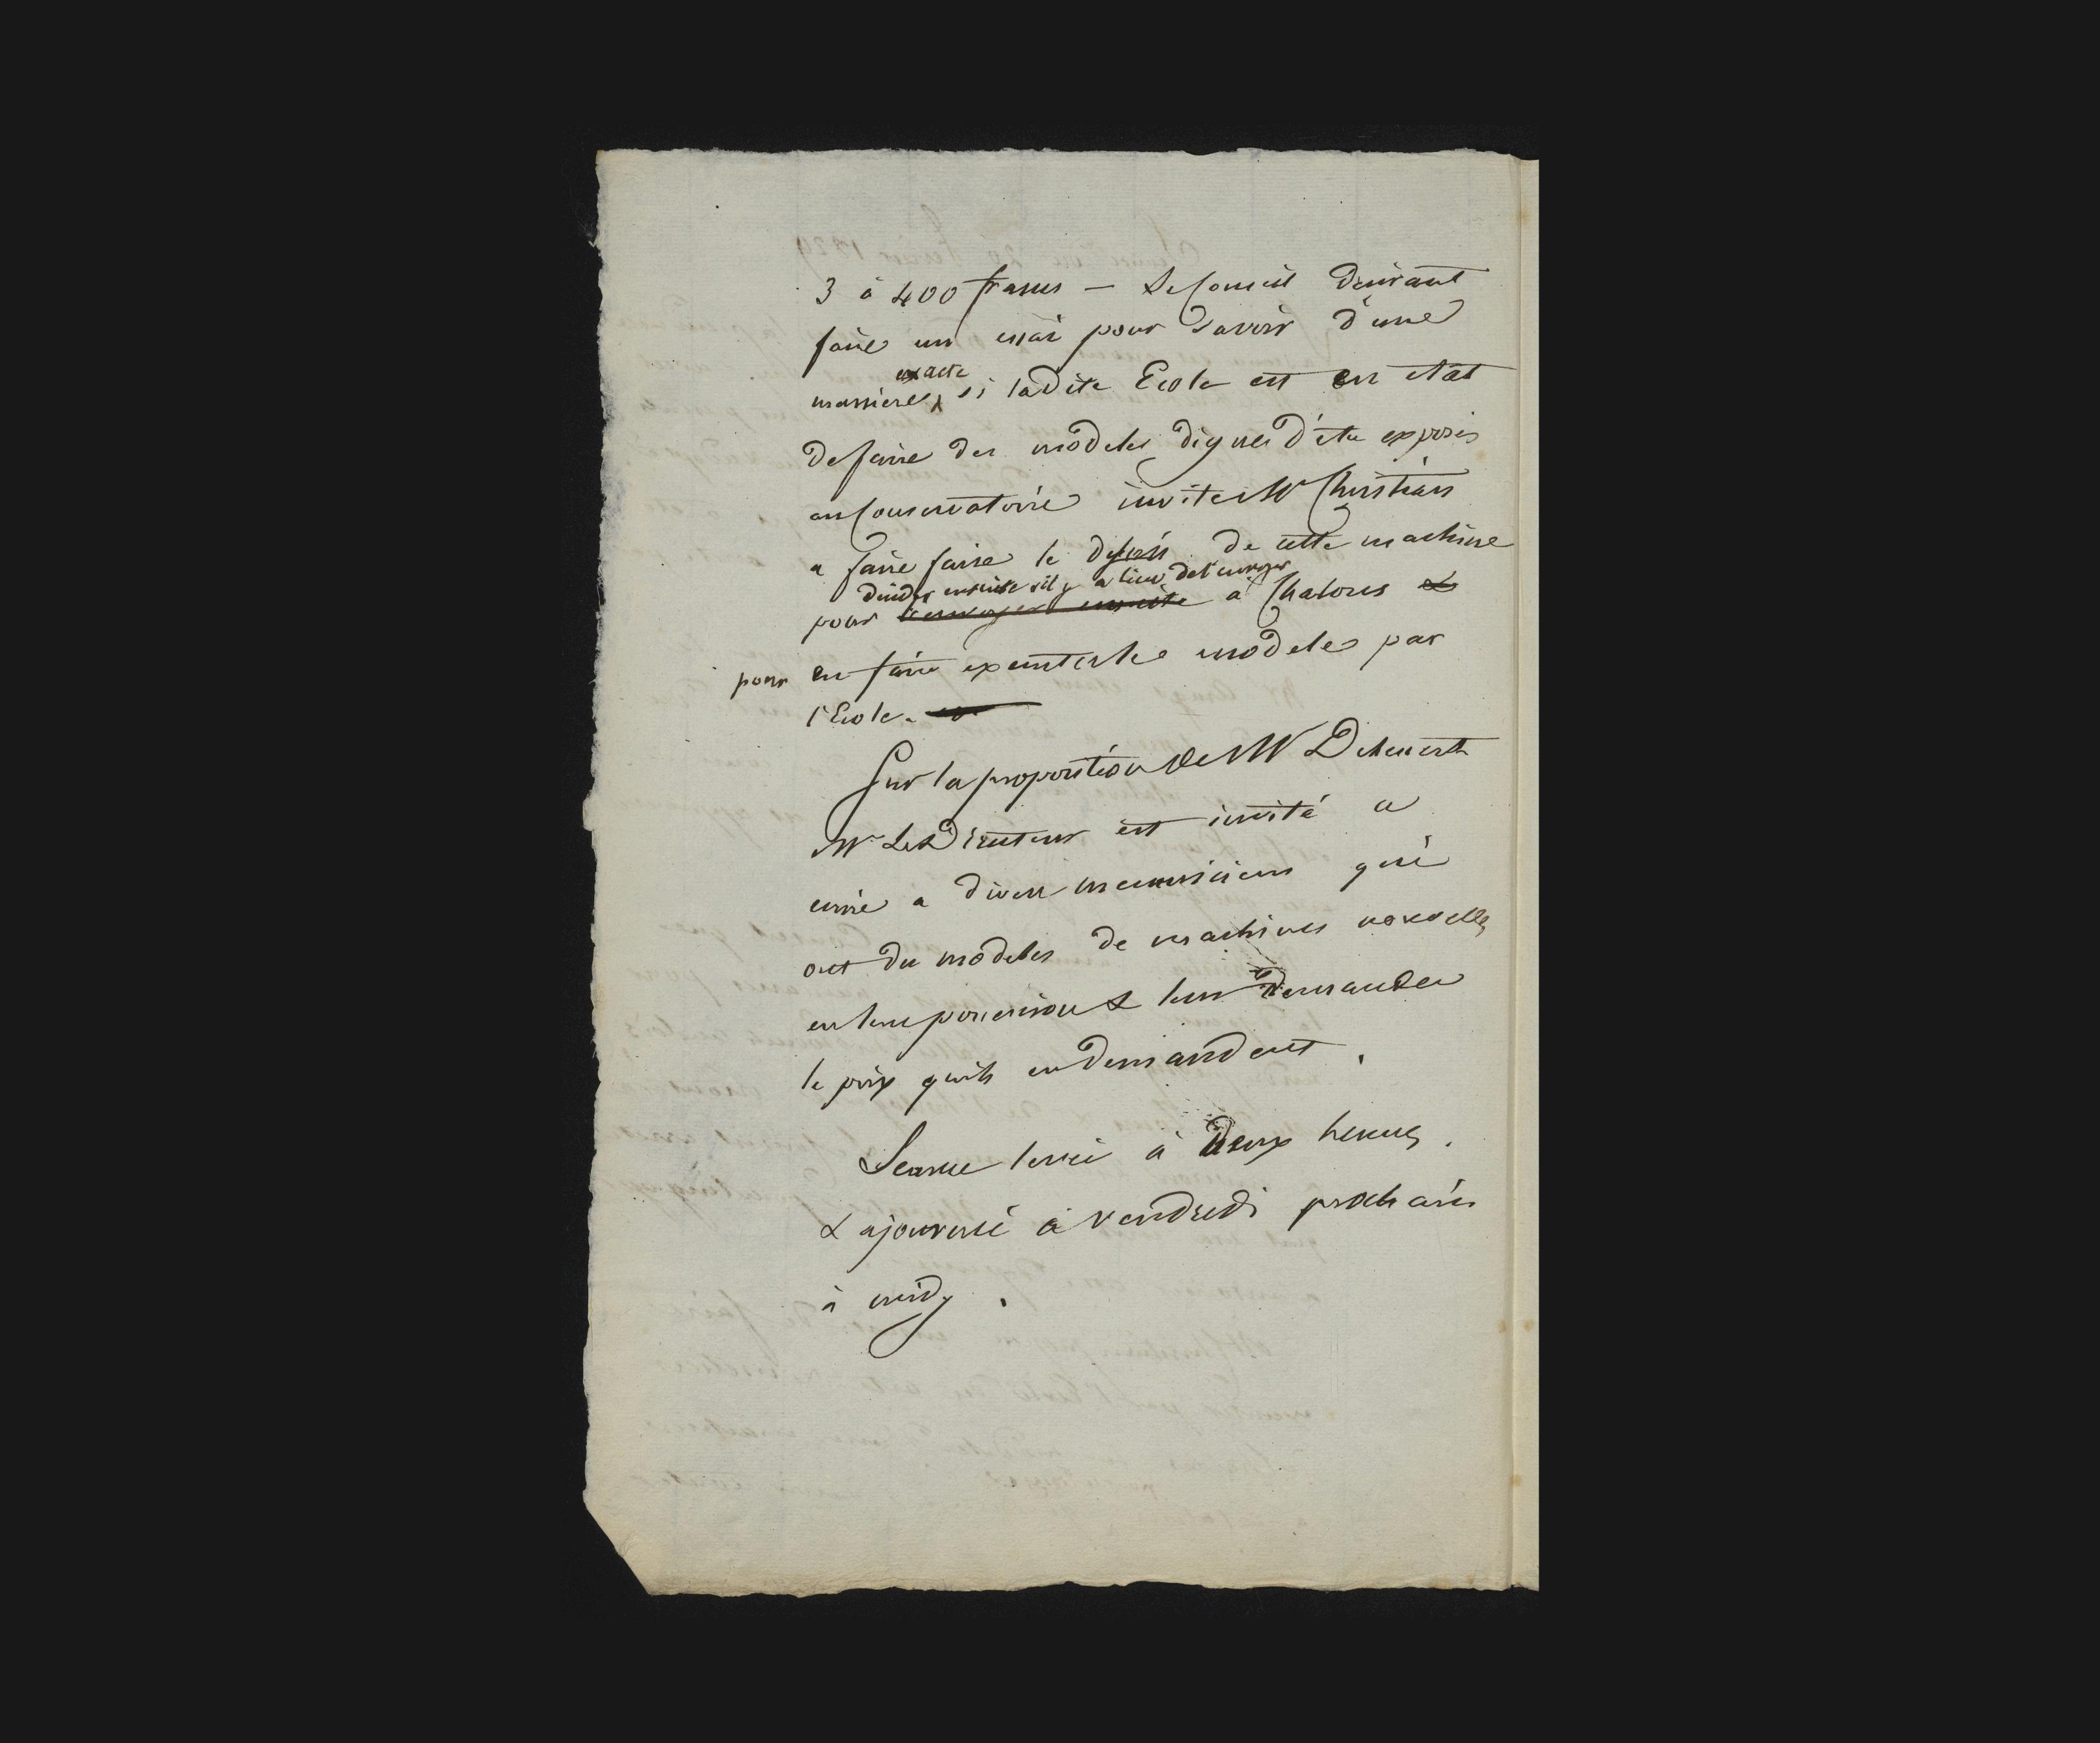 3 à 400 francs — Le Conseil desirant
faire un essai pour savoir d'une
exacte
maniere si ladite Ecole est en etat
de faire des modeles dignes d'etre exposés
au Conservatoire invite Mr Christian
a faire faire le dessin de cette machine
decider ensuite s'il y a lieu de l'envoyer
pour l'envoyer ensuite a Chalons &
pour en faire executer le modele par
l'Ecole.
Sur la proposition de Mr
Mr Le Directeur est invité a
ecrire a divers mecaniciens qui
ont des modeles de machines nouvelles
en leur possession & leur demander
le prix qu'ils en demandent.
Seance levée à deux heures.
& ajournée à vendredi prochain
à midy.